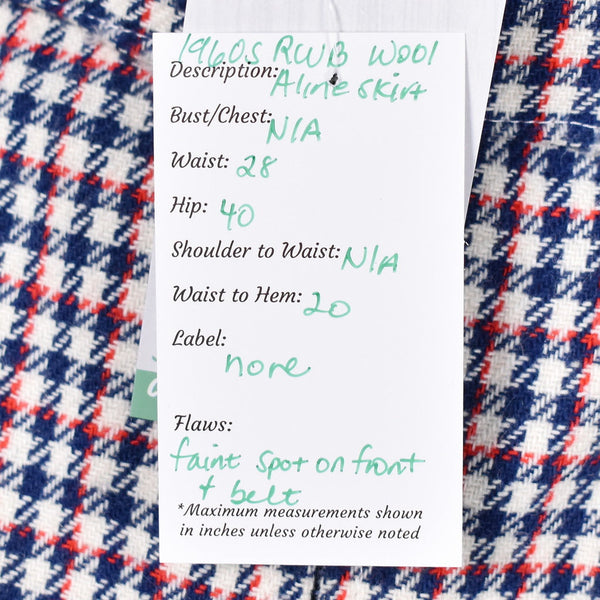 1960s RWB Wool
Description: Aline skirt
Bust/Chest: N/A
Waist: 28
Hip: 40
Shoulder to Waist: N/A
Waist to Hem: 20
Label:
none
Flaws:
faint spot on front
+ belt
*Maximum measurements shown
in inches unless otherwise noted